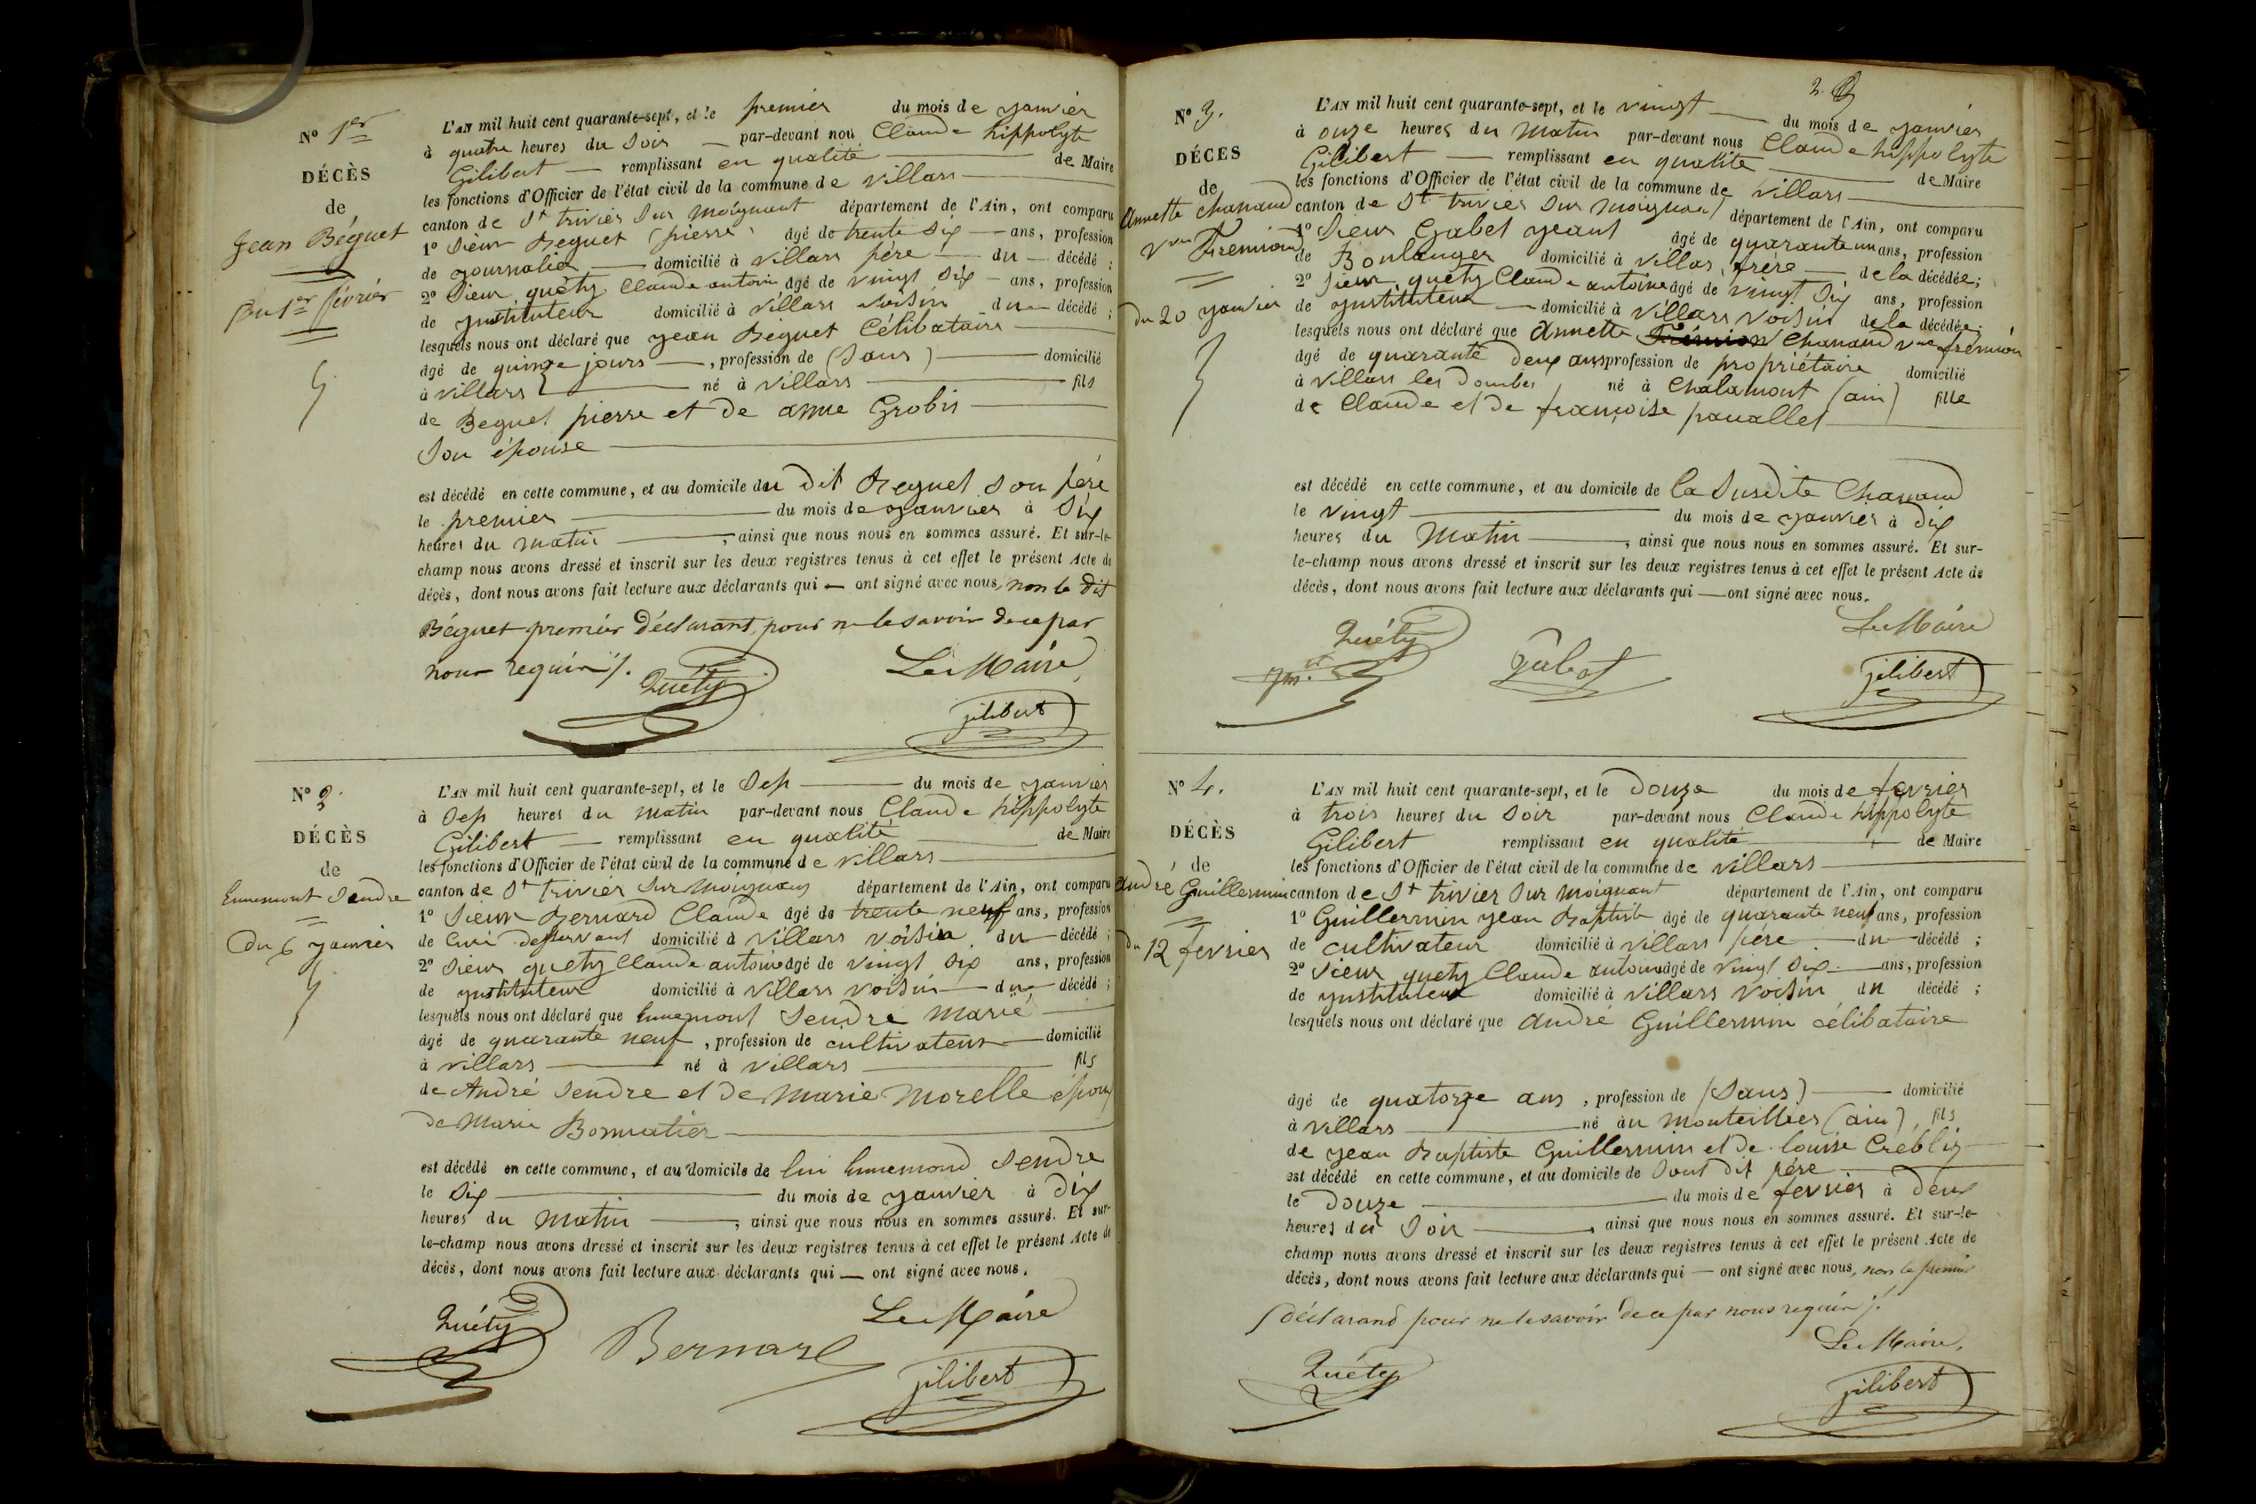 N° 1er
DÉCÈS
de
Jean Béguet
Du 1er février
L'AN mil huit cent quarante-sept, et le premier du mois de janvier
à quatre heures du Soir par-devant nou Claude hippolyte
Gilibert remplissant en qualité de Maire
les fonctions d'Officier de l'état civil de la commune de villars
canton de St trivier sur moignant département de l'Ain, ont comparu
1° Sieur Beguet (pierre) âgé de trente six ans, profession
de journalier domicilié à villars père du décédé ;
2° Sieur quéty Claude antoine âgé de vingt six ans, profession
de ynstituteur domicilié à villars voisin du décédé ;
lesquels nous ont déclaré que jean Béguet Célibataire
âgé de quinze jours, profession de (Sans) domicilié
à villars né à villars fils
de Beguet pierre et de anne Grobis
Son épouse
est décédé en cette commune, et au domicile du dit Beguet son père
le premier du mois de janvier à Six
heures du matin, ainsi que nous nous en sommes assuré. Et sur-le-
champ nous avons dressé et inscrit sur les deux registres tenus à cet effet le présent Acte de
décès, dont nous avons fait lecture aux déclarants qui ont signé avec nous, non le dit
Béguet premier déclarant, pour ne le savoir de ce par
nous requin /.
Quéty
Le Maire,
Gilibert
N° 2.
DÉCÈS
de
Ennemont Sendre
Du 6 janvier
L'AN mil huit cent quarante-sept, et le Sep du mois de janvier
à Sep heures du matin par-devant nous Claude hippolyte
Gilibert remplissant en qualité de Maire
les fonctions d'Officier de l'état civil de la commune de villars
canton de St trivier sur moignans département de l'Ain, ont comparu
1° Sieur Bernard Claude âgé de trente neuf ans, profession
de Curé desservant domicilié à villars voisin du décédé ;
2° Sieur quéty Claude antoine âgé de vingt Six ans, profession
de ynstituteur domicilié à villars voisin du décédé ;
lesquels nous ont déclaré que Ennemont Sendre Marie
âgé de quarante neuf, profession de cultivateur domicilié
à villars né à villars fils
de André Sendre et de Marie Morelle époux
de Marie Bonnatier
est décédé en cette commune, et au domicile de lui Ennemond Sendre
le Six du mois de janvier à dix
heures du matin, ainsi que nous nous en sommes assuré. Et sur-
le-champ nous avons dressé et inscrit sur les deux registres tenus à cet effet le présent Acte de
décès, dont nous avons fait lecture aux déclarants qui ont signé avec nous.
Quéty
Bernard
Le Maire
Gilibert
N° 3.
DÉCES
de
Annette Chanaud
Vve Fremion
du 20 janvier
L'AN mil huit cent quarante-sept, et le vingt du mois de janvier
à onze heures du matin par-devant nous Claude hippolyte
Gilibert remplissant en qualité de Maire
les fonctions d'Officier de l'état civil de la commune de villars
canton de St trivier sur moignant département de l'Ain, ont comparu
1° Sieur Gabet jeant âgé de quarante un ans, profession
de Boulanger domicilié à villars, frère de la décédée ;
2° Sieur quéty Claude antoine âgé de vingt Six ans, profession
de ynstituteur domicilié à villars voisin de la décédée
lesquels nous ont déclaré que Annette Frémion Chanaud vve frémion
âgé de quarante deux ans profession de propriétaire domicilié
à villars les Dombes né à Chalamont (ain) fille
de Claude et de françoise
est décédé en cette commune, et au domicile de la Susdite Chanaud
le vingt du mois de janvier à dix
heures du Matin, ainsi que nous nous en sommes assuré. Et sur-
le-champ nous avons dressé et inscrit sur les deux registres tenus à cet effet le présent Acte de
décès, dont nous avons fait lecture aux déclarants qui ont signé avec nous.
Quéty
Gabet
Le Maire
Gilibert
N° 4.
DÉCÈS
de
André Guillermin
du 12 fevrier
L'AN mil huit cent quarante-sept, et le Douze du mois de fevrier
à trois heures du Soir par-devant nous Claude hippolyte
Gilibert remplissant en qualité de Maire
les fonctions d'Officier de l'état civil de la commune de villars
canton de St trivier sur moignant département de l'Ain, ont comparu
1° Guillermin jean Baptiste âgé de quarante neuf ans, profession
de cultivateur domicilié à villars père du décédé ;
2° Sieur quety Claude antoine âgé de vingt six ans, profession
de ynstituteur domicilié à villars voisin du décédé ;
lesquels nous ont déclaré que André Guillermin célibataire
âgé de quatorze ans, profession de (Sans) domicilié
à villars né au montellier (ain) fils
de jean Baptiste Guillermin et de louise Creblis
est décédé en cette commune, et au domicile de Sont dit père
le Douze du mois de fevrier à deux
heures du Soir, ainsi que nous nous en sommes assuré. Et sur-le-
champ nous avons dressé et inscrit sur les deux registres tenus à cet effet le présent Acte de
décès, dont nous avons fait lecture aux déclarants qui ont signé avec nous, non le premier
déclarand pour ne le savoir de ce par nous requin /.
Quéty
Le Maire,
Gilibert